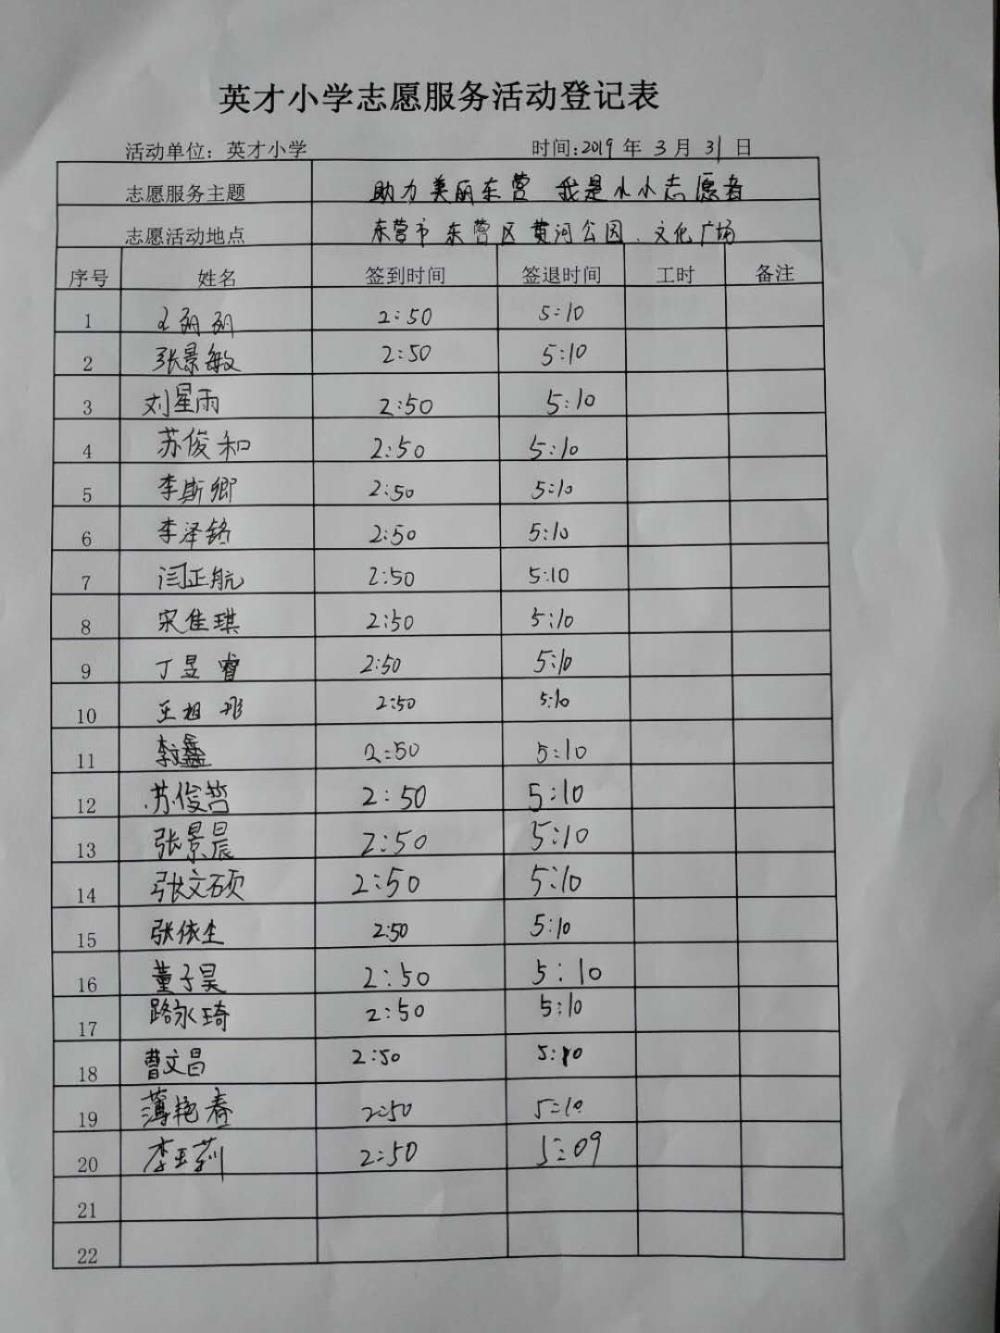 英才小学志愿服务活动登记表
活动单位：英才小学 时间:2019 年 3 月 31 日
志愿服务主题 助力美丽东营 我是小小志愿者
志愿活动地点 东营市东营区黄河公园、文化广场
序号 姓名 签到时间 签退时间 工时 备注
1 2:50 5:10
2 张景敏 2:50 5:10
3 刘星雨 2:50 5:10
4 苏俊和 2:50 5:10
5 李斯卿 2:50 5:10
6 李泽铭 2:50 5:10
7 闫正航 2:50 5:10
8 宋佳琪 2:50 5:10
9 丁昱睿 2:50 5:10
10 2:50 5:10
11 李文鑫 2:50 5:10
12 苏俊哲 2:50 5:10
13 张景晨 2:50 5:10
14 张文硕 2:50 5:10
15 张依生 2:50 5:10
16 董子昊 2:50 5:10
17 路永琦 2:50 5:10
18 曹文昌 2:50 5:10
19 薄艳春 2:50 5:10
20 李玉莉 2:50 5:09
21
22